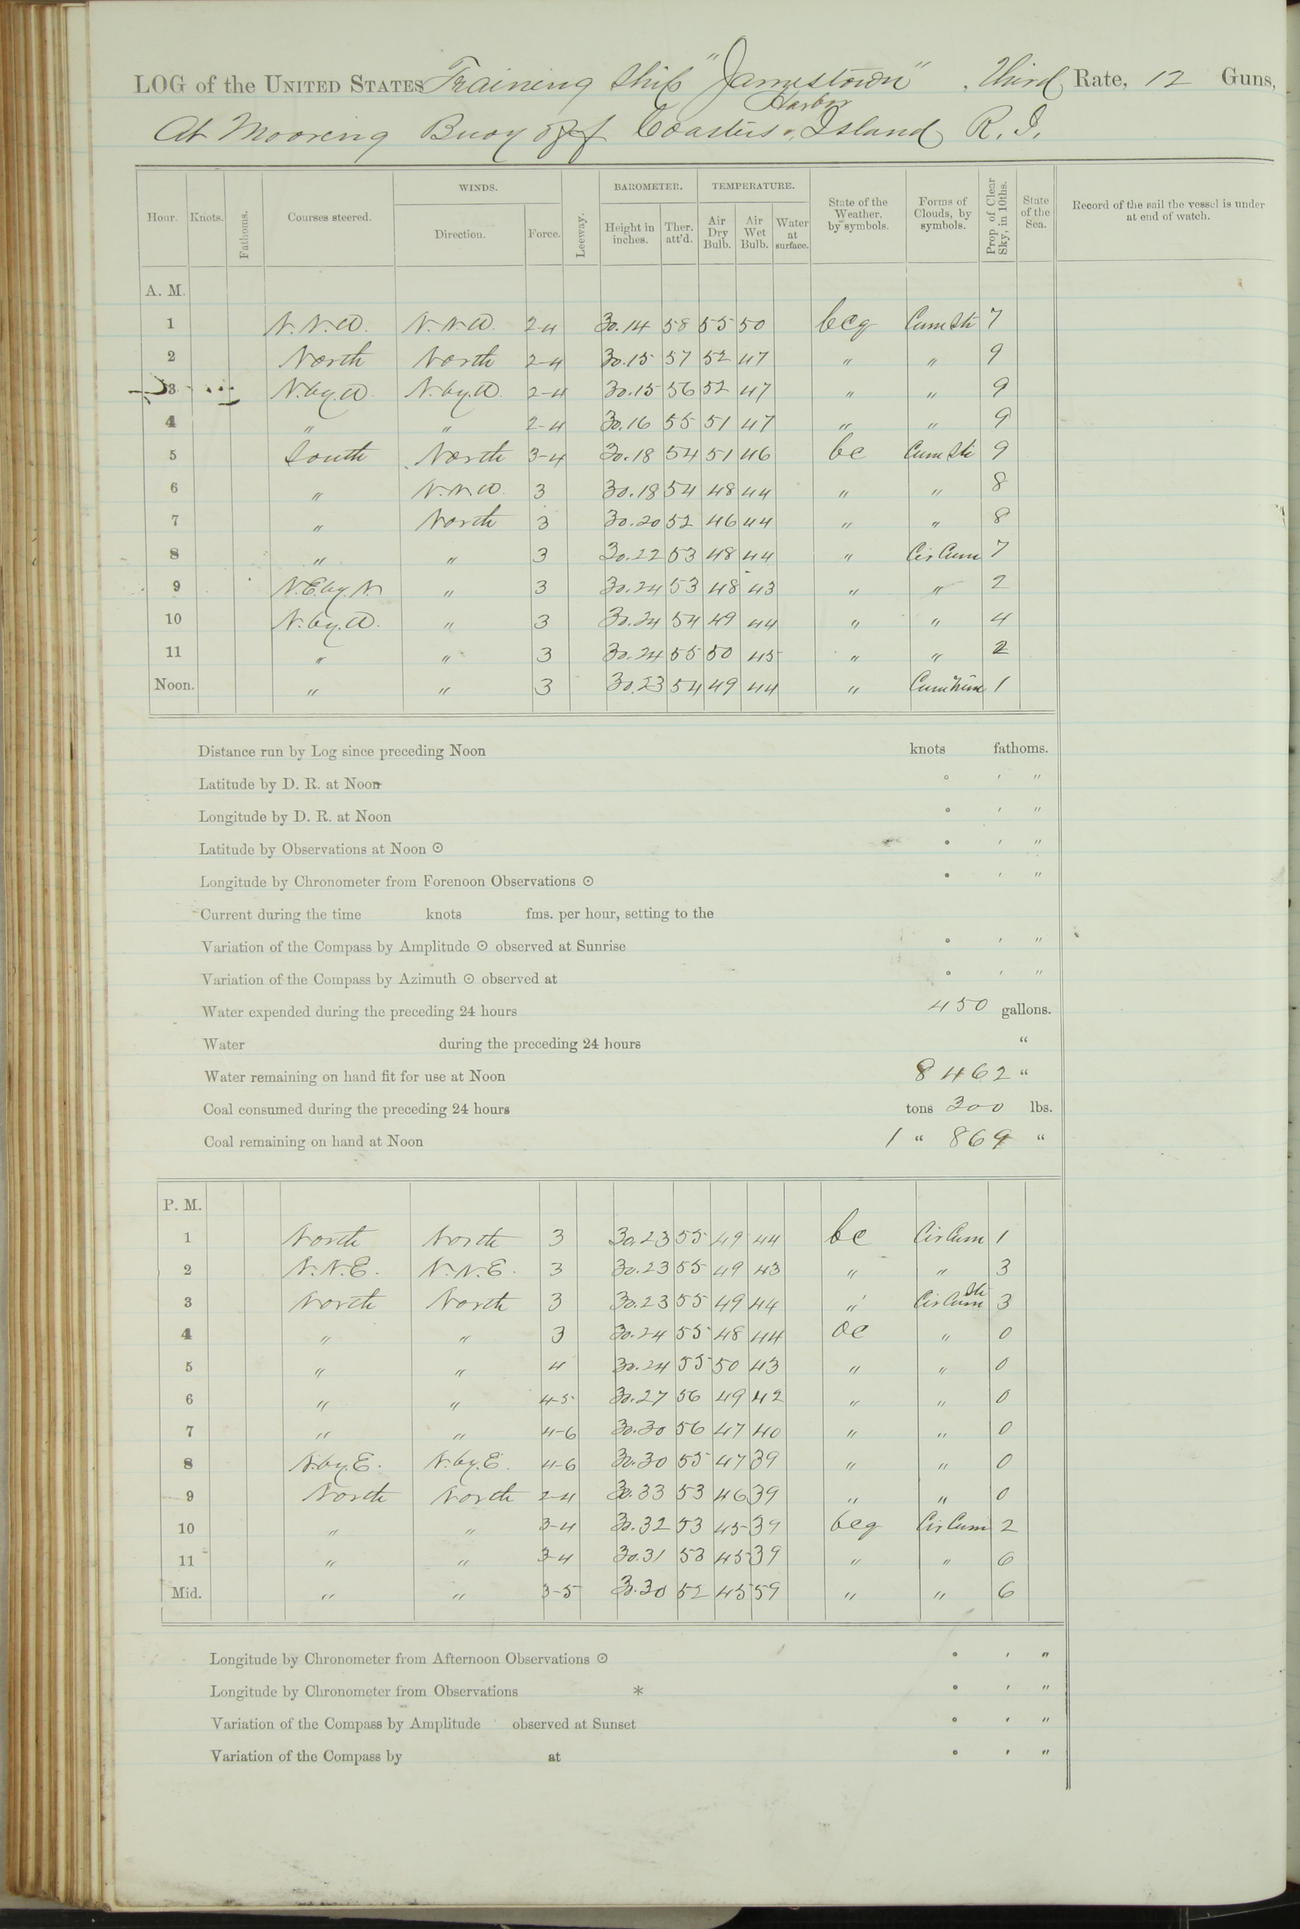 LOG of the UNITED STATES Training Ship "Jamestown", Third Rate, 12 Guns,
Harbor
At Mooring Buoy off Coasters Island R. I.
WINDS. BAROMETER. TEMPERATURE.
Hour. Knots. Fathoms. Courses steered. Direction. Force. Leeway. Height in inches. Ther. att'd. Air Dry Bulb. Air Wet Bulb. Water at surface. State of the Weather, by symbols. Forms of Clouds, by symbols. Prop. of Clear Sky, in 10ths. State of the Sea. Record of the sail the vessel is under at end of watch.
A. M.
1 N.N.W. N.N.W. 2-4 30.14 58 55 50 bcq Cum Str 7
2 North North 2-4 30.15 57 52 47 " " 9
3 N.by.W. N.by.W. 2-4 30.15 56 52 47 " " 9
4 " " 2-4 30.16 55 51 47 " " 9
5 South North 3-4 30.18 54 51 46 bc Cum Str 9
6 " N.N.W. 3 30.18 54 48 44 " " 8
7 " North 3 30.20 52 46 44 " " 8
8 " " 3 30.22 53 48 44 " Cir Cum 7
9 N.E.by.N " 3 30.24 53 48 43 " " 2
10 N.by.W. " 3 30.24 54 49 44 " " 4
11 " " 3 30.24 55 50 45 " " 2
Noon. " " 3 30.23 54 49 44 " Cum Nim 1
Distance run by Log since preceding Noon knots fathoms.
Latitude by D. R. at Noon ° ′ ″
Longitude by D. R. at Noon ° ′ ″
Latitude by Observations at Noon ⊙ ° ′ ″
Longitude by Chronometer from Forenoon Observations ⊙ ° ′ ″
Current during the time knots fms. per hour, setting to the
Variation of the Compass by Amplitude ⊙ observed at Sunrise ° ′ ″
Variation of the Compass by Azimuth ⊙ observed at ° ′ ″
Water expended during the preceding 24 hours 450 gallons.
Water during the preceding 24 hours "
Water remaining on hand fit for use at Noon 8462 "
Coal consumed during the preceding 24 hours tons 300 lbs.
Coal remaining on hand at Noon 1 " 869 "
P. M.
1 North North 3 30.23 55 49 44 bc Cir Cum 1
2 N.N.E. N.N.E. 3 30.23 55 49 43 " " 3
3 North North 3 30.23 55 49 44 " Cir Cum Str 3
4 " " 3 30.24 55 48 44 oc " 0
5 " " 4 30.24 55 50 43 " " 0
6 " " 4-5 30.27 56 49 42 " " 0
7 " " 4-6 30.30 56 47 40 " " 0
8 N.by.E. N.by.E. 4-6 30.30 55 47 39 " " 0
9 North North 2-4 30.33 53 46 39 " " 0
10 " " 3-4 30.32 53 45 39 bcq Cir Cum 2
11 " " 3-4 30.31 53 45 39 " " 6
Mid. " " 3-5 30.30 52 45 59 " " 6
Longitude by Chronometer from Afternoon Observations ⊙ ° ′ ″
Longitude by Chronometer from Observations * ° ′ ″
Variation of the Compass by Amplitude observed at Sunset ° ′ ″
Variation of the Compass by at ° ′ ″